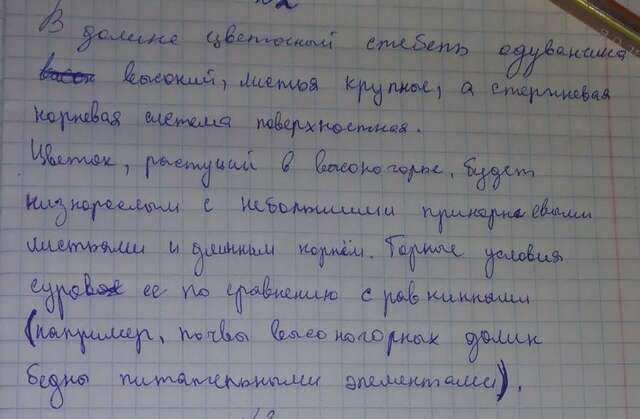 №2
В долине цветочный стебель одуванчика
высокий, листья крупные, а стержневая
корневая система поверхностная.
Цветок, растущий в высокогорье, будет
низкорослым с небольшими прикорневыми
листьями и длинным корнем. Горные условия
суровее по сравнению с равнинными
(например, почвы высокогорных долин
бедны питательными элементами).